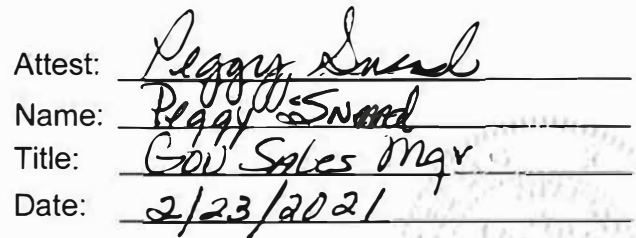 Attest: Peggy Snead
Name: Peggy Snead
Title: Gov Sales Mgr
Date: 2/23/2021